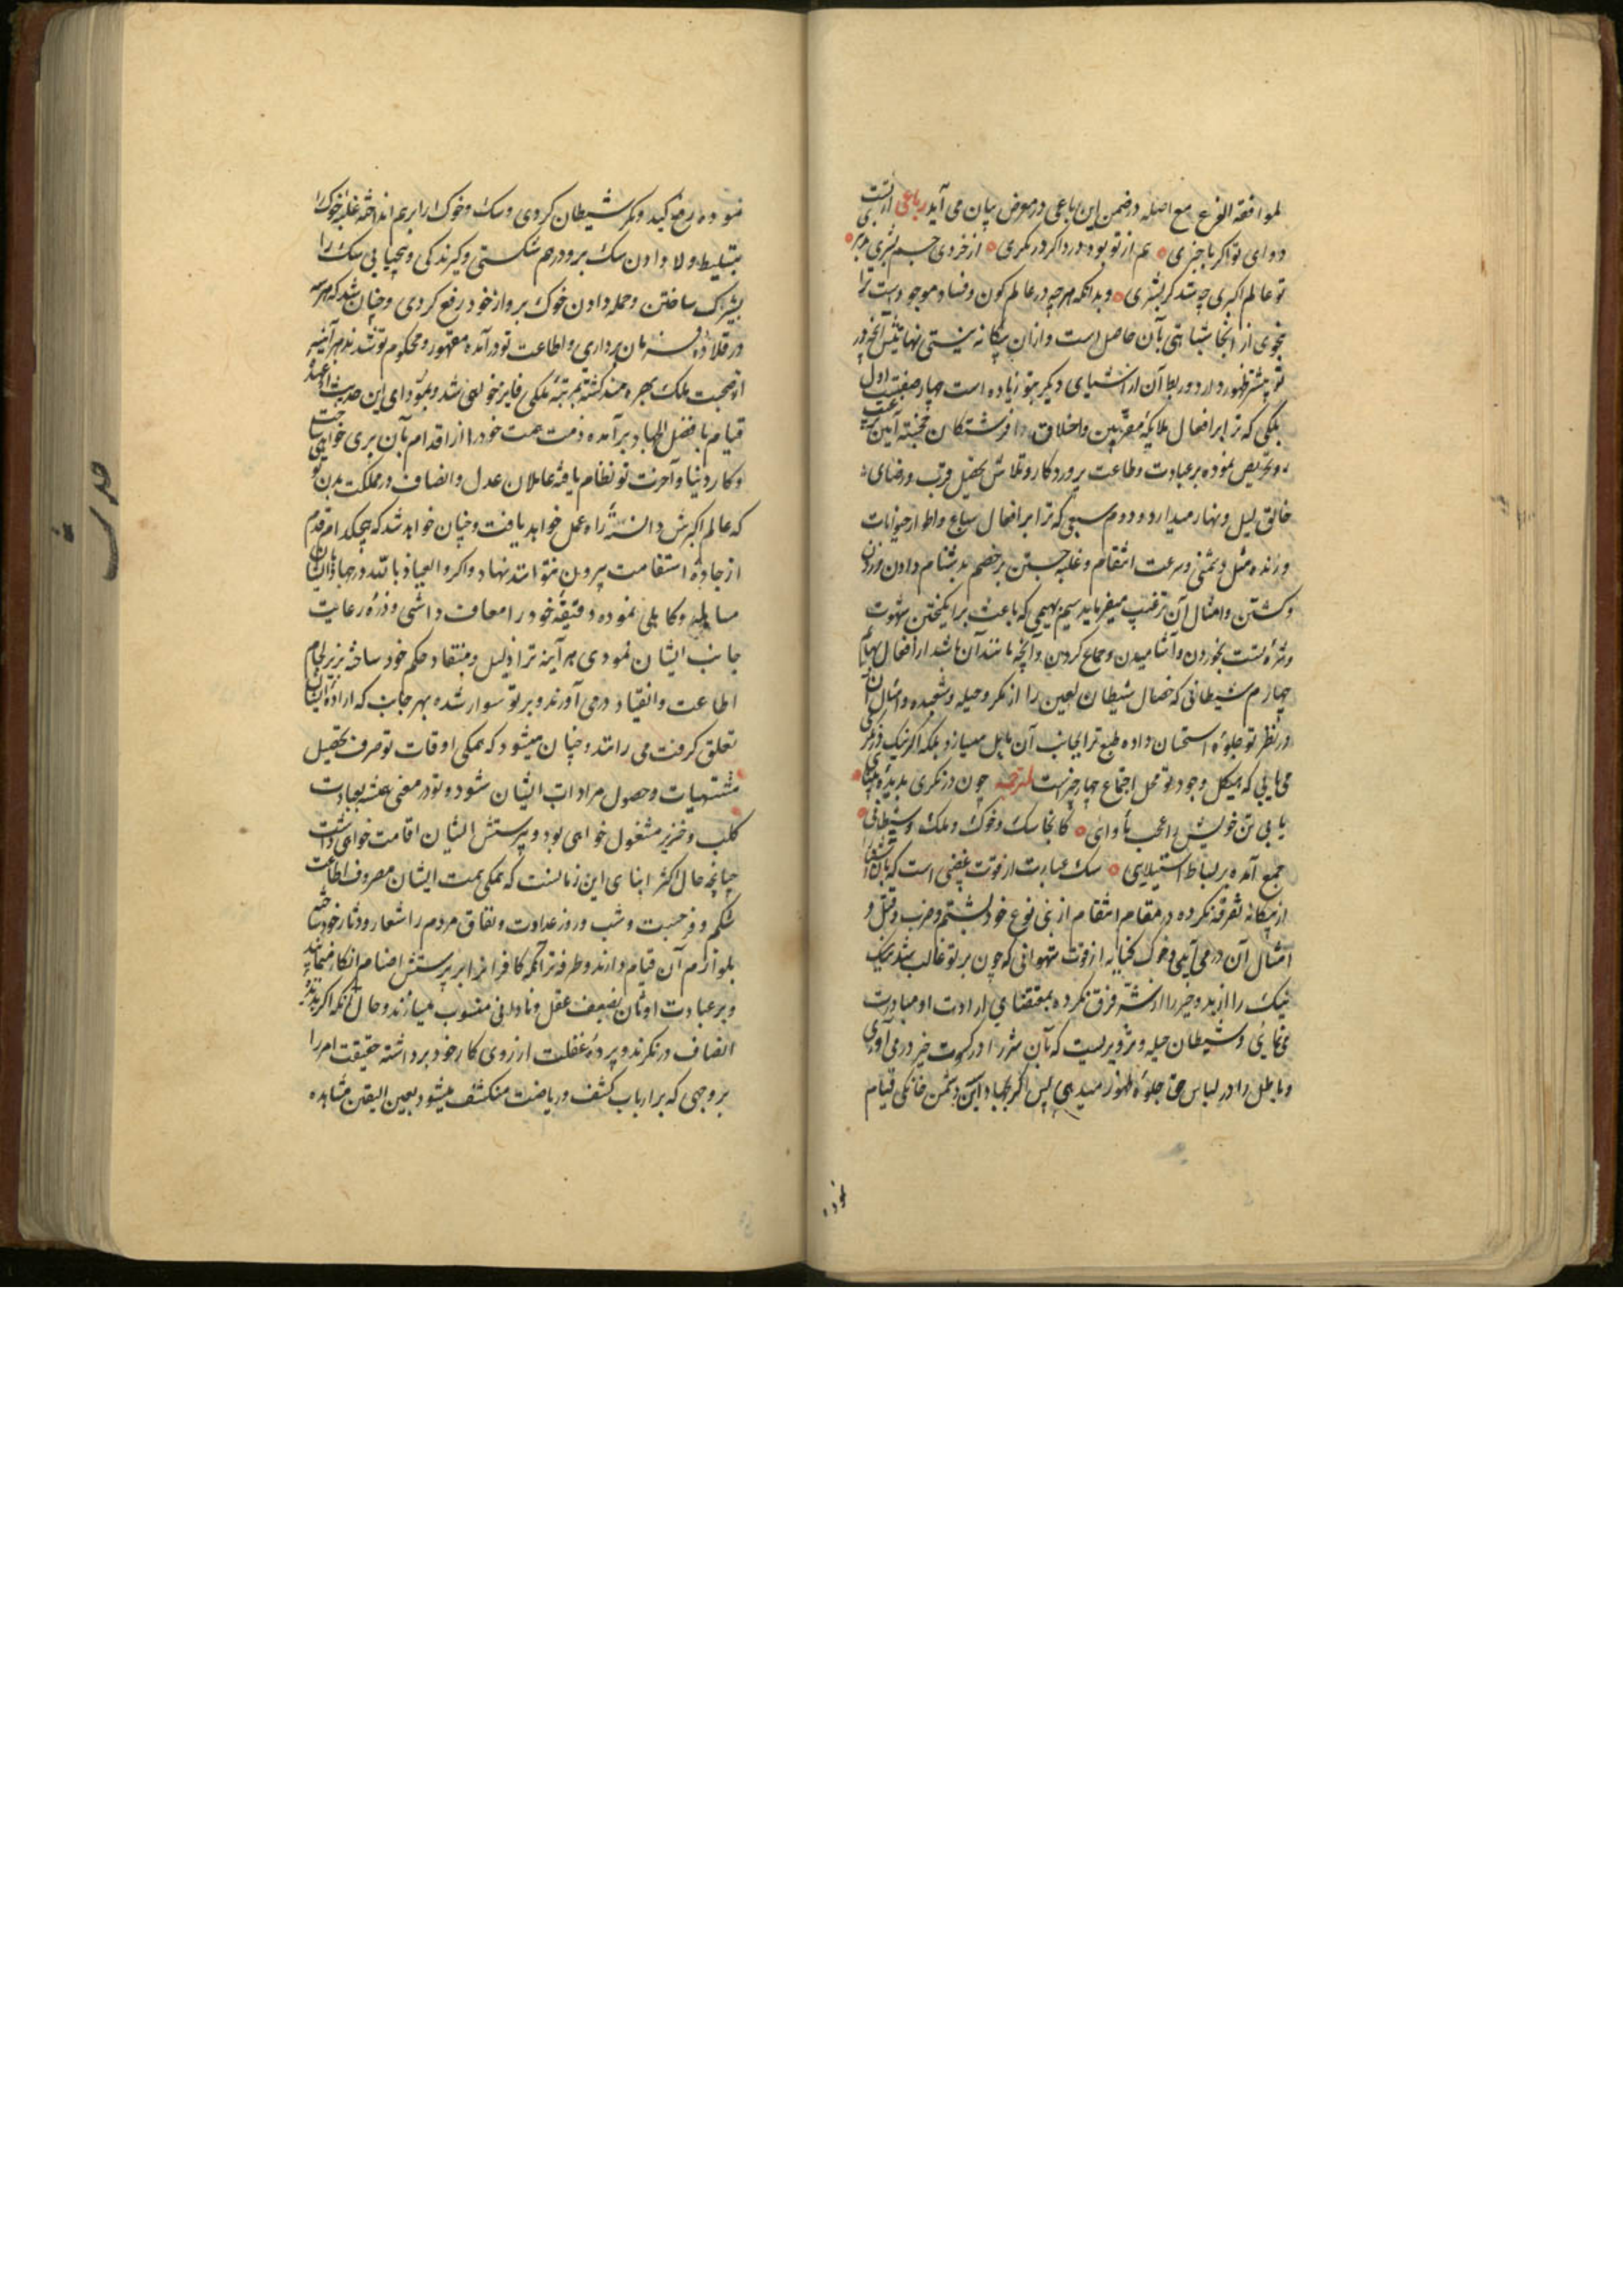 لموافقة الفرع مع اصله در ضمن این رباعی در معرض بیان می آید رباعی از تست
دوای تو اگر با خبری هم از تو بود درد اگر در نگری از خردی جسم بشری
تو عالم اکبری چه شد گر بشری و بدانکه هر چه در عالم کون و فساد موجود است ترا
بنحوی از انحا شباهتی بآن حاصل است و از ان بیگانه نیستی نهایتش آنچه در
تو بیشتر ظهور دارد و ربط آن از اشیای دیگر بتو زیاده است چهار صفتست اول
ملکی که ترا بر افعال ملایکه مقربین و اخلاق فرشتگان خجسته آیین
و تحریص نموده بر عبادت و طاعت پروردگار و تلاش تحصیل قرب و رضای
خالق لیل و نهار میدارد و دوم سبعی که ترا بر افعال سباع و اطوار حیوانات
درنده مثل دشمنی و سرعت انتقام و غلبه جستن بر خصم بدشنام دادن و زدن
و کشتن و امثال آن ترغیب میفرماید سیم بهیمی که باعث بر انگیختن شهوت
و شره تست بخوردن و آشامیدن و جماع کردن و آنچه مانند آن باشد از افعال بهایم
چهارم شیطانی که خصال شیطان لعین را از مکر و حیله و شعبده و امثال آن
در نظر تو جلوه استحسان داده طبع ترا بجانب آن مایل میسازد بلکه اگر نیک در نگری
می یابی که هیکل وجود تو محل اجتماع چهار چیزست لمترجمه چون در نگری بدیده بینایی
یابی تن خویش را عجب مأوای کانجا سگ و خوک و ملک و شیطانی
جمع آمده بر بساط استیلایی سگ عبارت از قوت غضبی است که بآن آشنا را
از بیگانه تفرقه نکرده در مقام انتقام از بنی نوع خود بشتم و ضرب و قتل و
امثال آن در می آیی و خوک کنایه از قوت شهوانی که چون بر تو غالب شد
نیک را از بد و خیر را از شر فرق نکرده بمقتضای ارادت او مبادرت
می نمایی و شیطان حیله و تزویریست که بآن شر را در کسوت خیر در می آوری
و باطل را در لباس حق جلوه ظهور میدهی پس اگر بجهاد این دشمن خانگی قیام
نموده
نموده رفع کید و مکر شیطان کردی و سگ و خوک را بر هم انداخته غلبه خوک را
بتسلیط و لا دادن سگ برو در هم شکستی و گیرندگی و بیحیایی سگ را
بشیرک ساختن و حمله دادن خوک برو از خود رفع کردی و چنان شد که هر سه
در قلاده فرمان برداری و اطاعت تو در آمده مقهور و محکوم تو شدند هر آینه
از صحبت ملک بهره مند گشته بمرتبه ملکی فایز خواهی شد و بمؤدای این حدیث از عهده
قیام بافضل الجهاد برآمده ذمت همت خود را از اقدام بآن بری خواهی ساخت
و کار دنیا و آخرت تو نظام یافته عاملان عدل و انصاف در مملکت بدن تو
که عالم اکبرش دانسته راه عمل خواهد یافت و چنان خواهد شد که هیچکدام قدم
از جاده استقامت بیرون نتوانند نهاد و اگر و العیاذ بالله در جهاد ایشان
مساهله و کاهلی نموده دقیقه خود را معاف داشتی و ذره رعایت
جانب ایشان نمودی هر آینه ترا ذلیل و منقاد حکم خود ساخته بزیر لجام
اطاعت و انقیاد درمی آورند و بر تو سوار شده بهر جانب که اراده ایشان
تعلق گرفت می رانند و چنان میشود که همگی اوقات تو صرف تحصیل
مشتهیات و حصول مرادات ایشان شود و تو در معنی همیشه بعبادت
کلب و خنزیر مشغول خواهی بود و پرستش ایشان اقامت خواهی داشت
چنانچه حال اکثر ابنای این زمانست که همگی همت ایشان مصروف اطاعت
شکم و فرجست و شب و روز عداوت و نفاق مردم را شعار و دثار خود ساخته
بلوازم آن قیام دارند و طرفه تر آنکه کافرانرا بر پرستش اصنام انکار مینمایند
و بر عبادت اوثان بضعف عقل و نادانی منسوب میسازند و حال آنکه اگر بدیده
انصاف در نگرند و پرده غفلت از روی کار خود برداشته حقیقت امر را
بر وجهی که بر ارباب کشف و ریاضت منکشف میشود بعین الیقین مشاهده